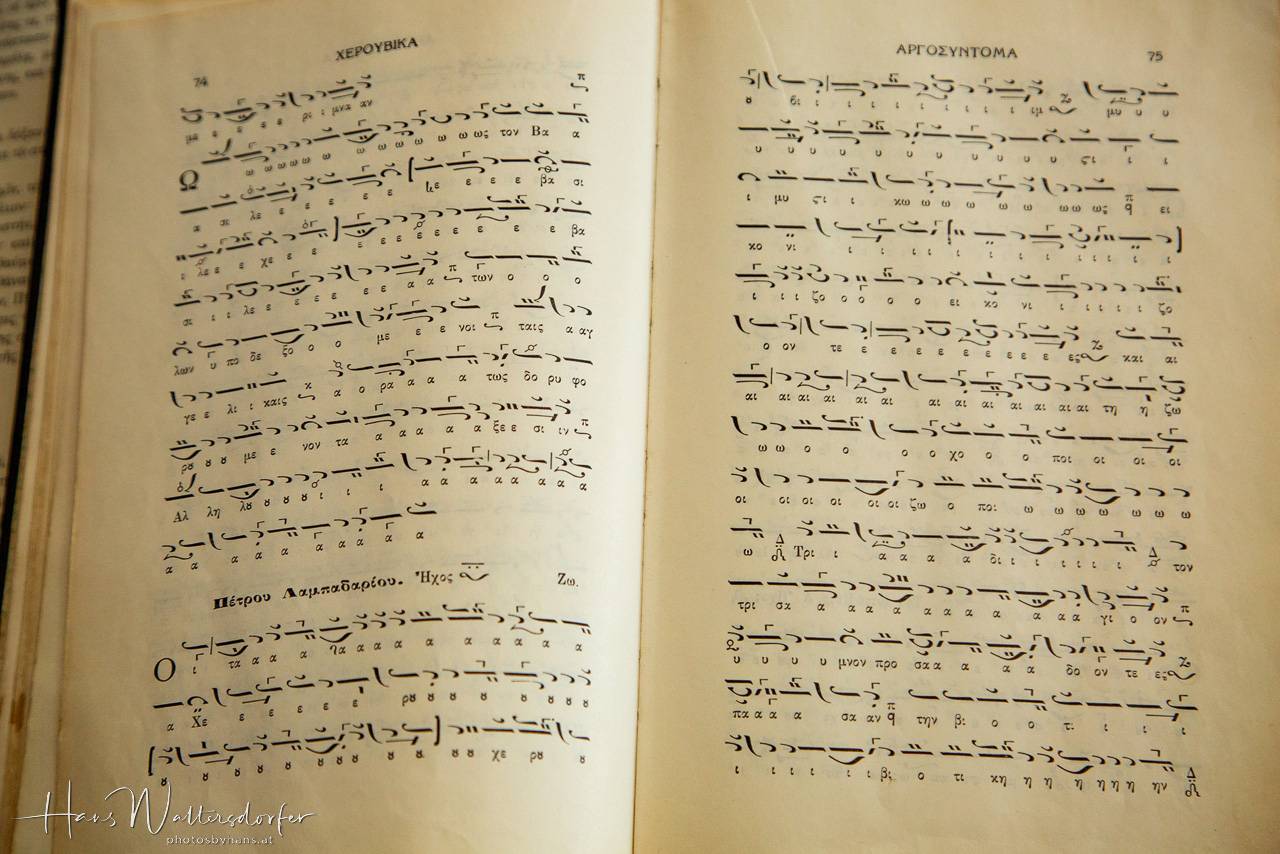 74
ΧΕΡΟΥΒΙΚΑ
με ε ε ε ε ρι ι μνα αν
Ω ω ω ω ω ω ω ω ω ω ω ω ως τον Βα α
α σι λε ε ε ε ε ε ε ε ε ε βα σι
ι λε ε ε χε ε ε ε ε ε ε ε ε ε ε ε βα
σι ι ι λε ε ε ε ε ε ε α α των ο ο ο
λων υ πο δε ξο ο ο με ε ε νοι ταις α αγ
γε ε λι ι καις α ο ρα α α α τως δο ρυ φο
ρȣ ȣ ȣ με ε νον τα α α α α α ξε ε σι ιν
Αλ λη λȣ ȣ ȣ ȣ ι ι ι α α α α α α α
α α α α α α α α α α
Πέτρου Λαμπαδαρίου. Ἦχος Ζω.
Ο ι τα α α α ηα α α α α α α α α α α
α Χε ε ε ε ε ε ρȣ ȣ ȣ ȣ ȣ ȣ ȣ ȣ
ȣ ȣ ȣ ȣ ȣ ȣ ȣ ȣ ȣ ȣ ȣ ȣ ȣ χε ρȣ ȣ
ΑΡΓΟΣΥΝΤΟΜΑ
75
ȣ βι ι ι ι ι ι ι ι ι ι ιμ μυ υ υ
υ υ υ υ υ υ υ υ υ υ υ ςι ι ι
ι μυ ςι ι κω ω ω ω ω ω ω ω ως ει
κο νι ι ι ι ι ι ι ι ι ι ι
ι ι ι ζο ο ο ο ο ει κο νι ι ι ι ι ζο
ο ον τε ε ε ε ε ε ε ε ε ε ες και αι
αι αι αι αι αι αι αι αι αι αι αι τη η ζω
ω ω ο ο ο ο χο ο ο ποι οι οι οι
οι οι οι οι οι οι ζω ο ποι ω ω ω ω ω ω ω
ω Τρι ι α α α α δι ι ι ι ι ι τον
τρι σα α α α α α α α α α α γι ο ον
υ υ υ υ μνον προ σα α α α α α δο ον τε ες
πα α α α σα αν την βι ο ο τι ι ι ι
ι ι ι ι ι βι ο τι κη η η η η η ην
Hans Waltersdorfer
photosbyhans.at